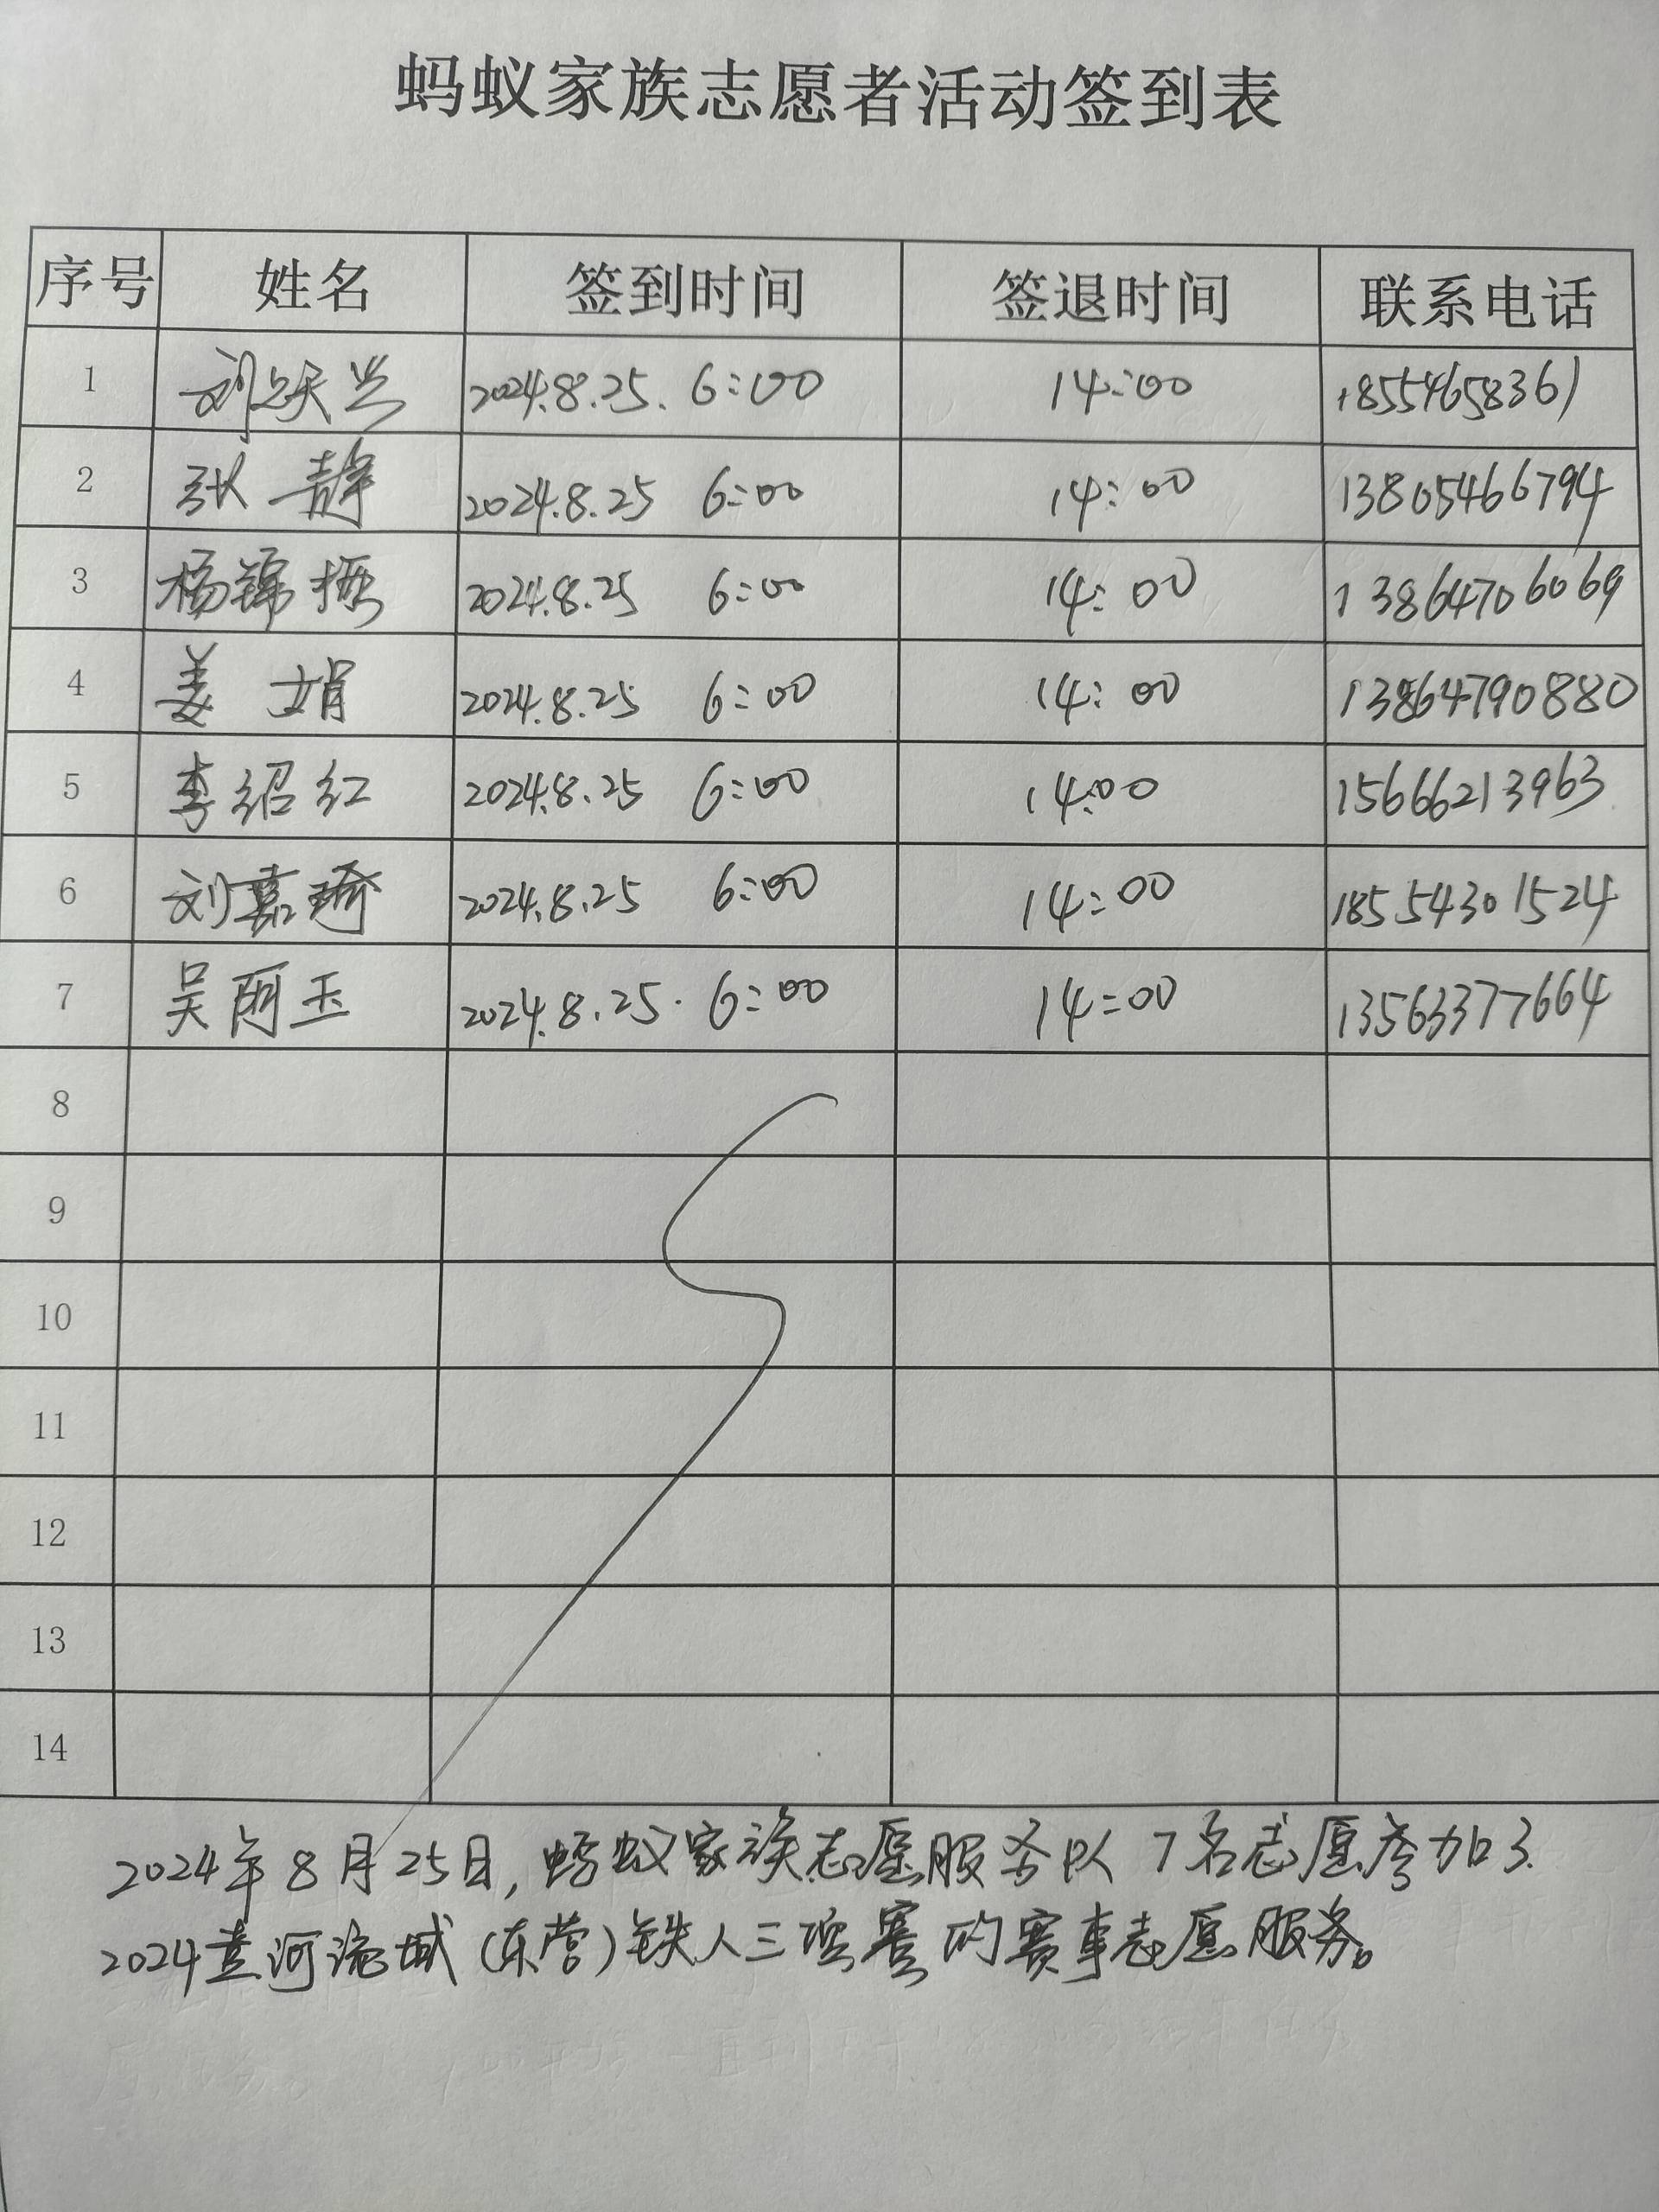 蚂蚁家族志愿者活动签到表
序号 姓名 签到时间 签退时间 联系电话
1 刘跃兴 2024.8.25. 6:00 14:00 18554658361
2 张静 2024.8.25 6:00 14:00 13805466794
3 杨锦 2024.8.25 6:00 14:00 13864706069
4 姜娟 2024.8.25 6:00 14:00 13864790880
5 李绍红 2024.8.25 6:00 14:00 15666213963
6 刘嘉琦 2024.8.25 6:00 14:00 18554301524
7 吴丽玉 2024.8.25. 6:00 14:00 13563377664
8
9
10
11
12
13
14
2024年8月25日,蚂蚁家族志愿服务队7名志愿参加了
2024黄河流域(东营)铁人三项赛的赛事志愿服务。